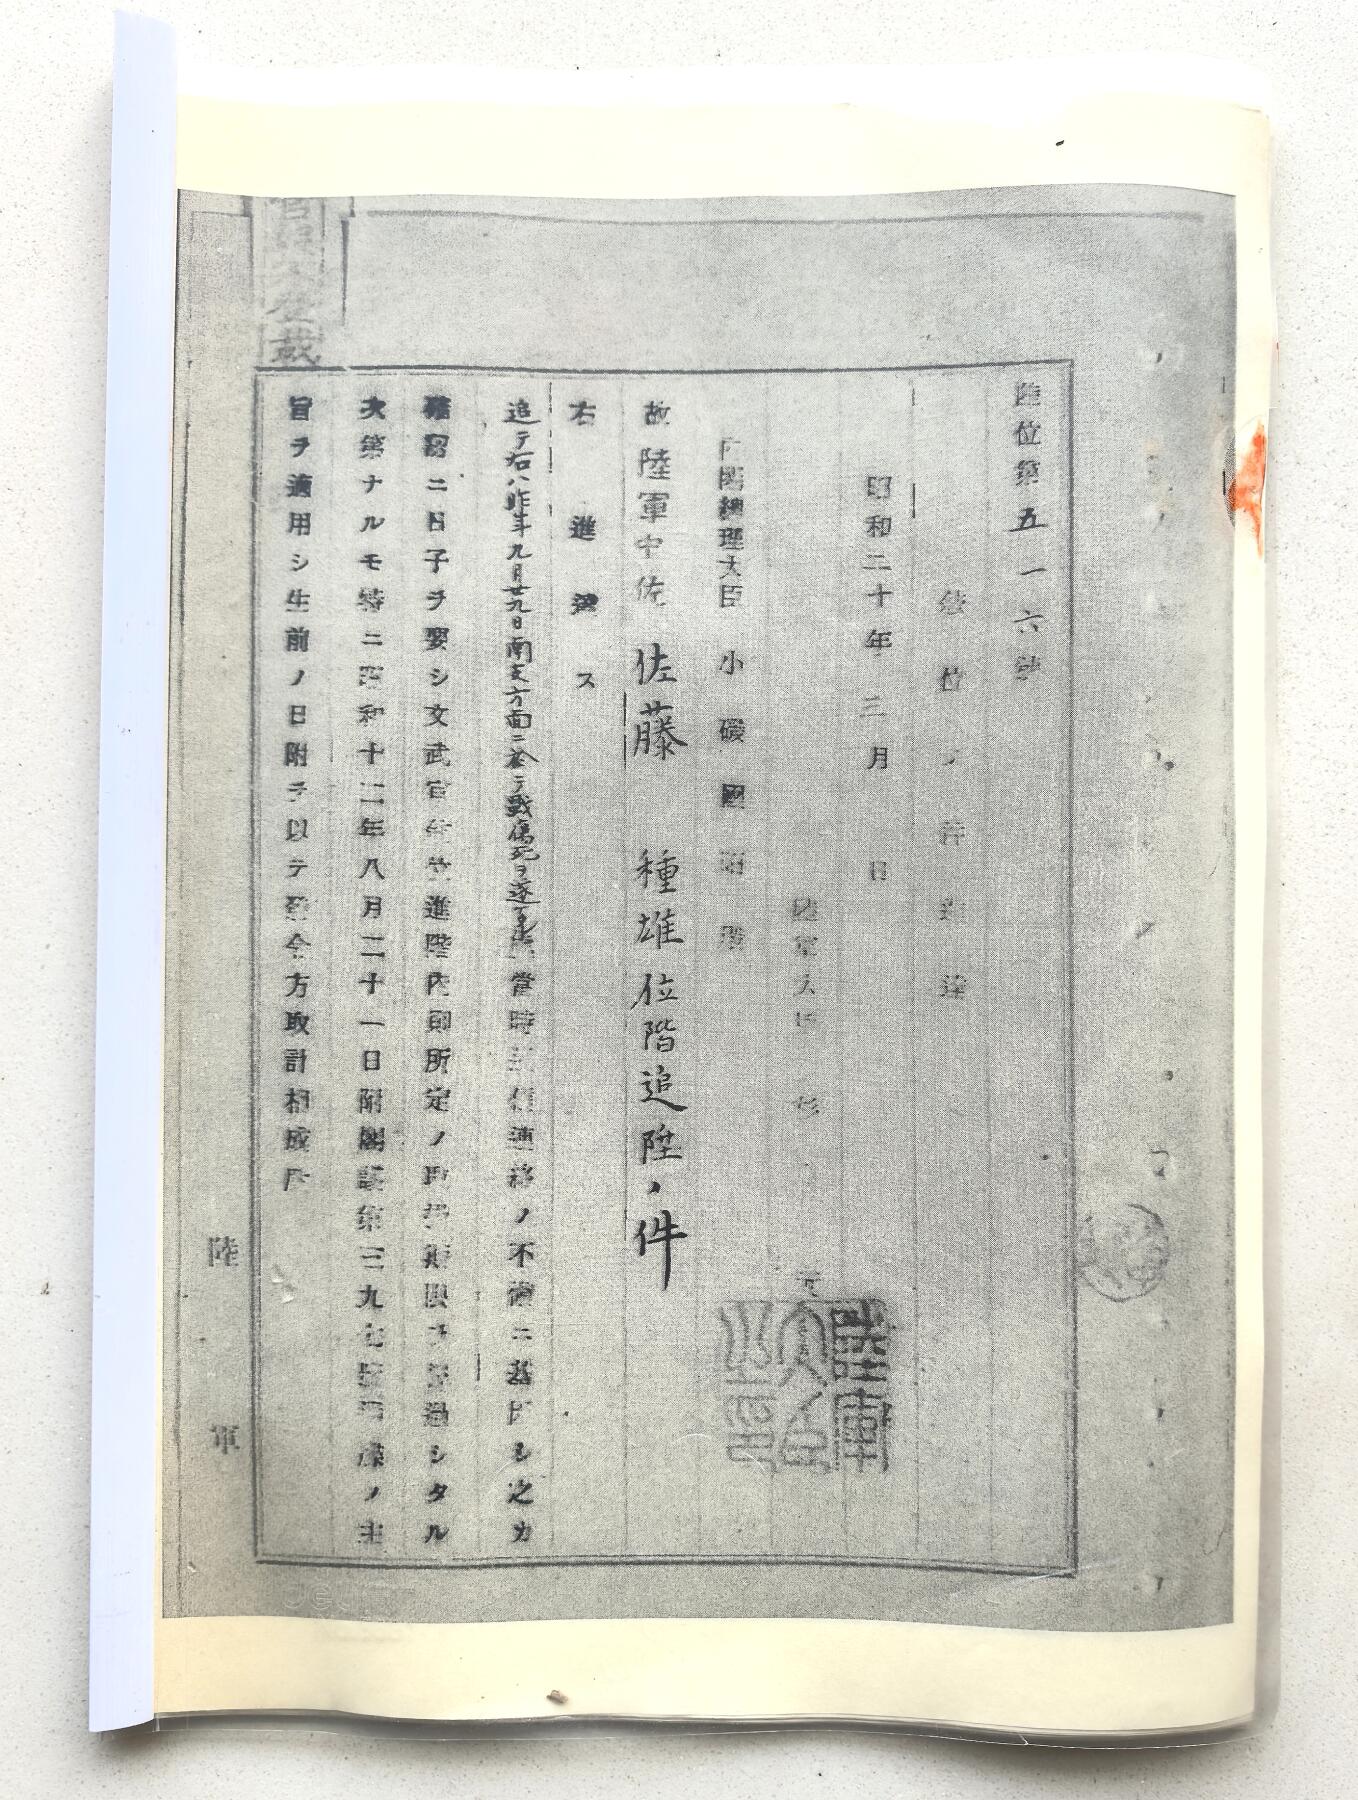 陸位第五一六號
敍位ノ件進達
昭和二十年三月 日
陸軍大臣 杉 元
內閣總理大臣 小磯國昭殿
故陸軍中佐 佐藤 種雄位階追陞ノ件
右進達ス
追テ右ハ昨年九月廿九日南支方面ニ於テ戰傷死ヲ遂 當時 ノ不 ニ基因シ之カ
ニ日子ヲ要シ文武官 進陞內則所定ノ 期限ヲ經過シタル
次第ナルモ特ニ昭和十二年八月二十一日附閣議第三九七號 ノ主
旨ヲ適用シ生前ノ日附ヲ以テ發令方取計相成度
陸軍
陸軍大臣之印
官報不登載